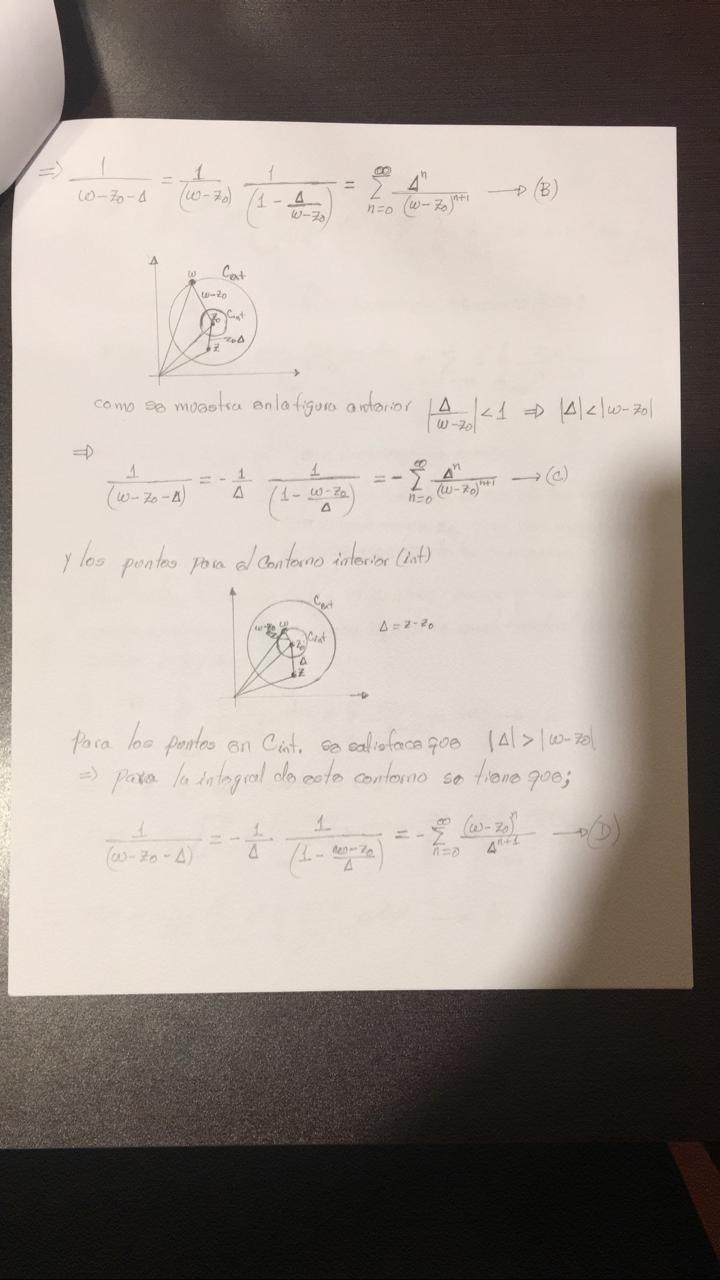 ⇒ 1/(ω-z₀-Δ) = 1/(ω-z₀) 1/(1 - Δ/(ω-z₀)) = ∑_{n=0}^{∞} Δⁿ/(ω-z₀)ⁿ⁺¹ → (B)
ω C_ext
ω-z₀
z₀ C_int
z₀Δ
z
como se muestra en la figura anterior |Δ/(ω-z₀)| < 1 ⇒ |Δ| < |ω-z₀|
⇒
1/(ω-z₀-Δ) = -1/Δ 1/(1 - (ω-z₀)/Δ) = -∑_{n=0}^{∞} Δⁿ/(ω-z₀)ⁿ⁺¹ → (C)
y los puntos para el contorno interior (int)
C_ext
ω-z₀ ω
C_int
z₀
Δ
z
Δ = z-z₀
Para los puntos en C int. se satisface que |Δ| > |ω-z₀|
⇒ para la integral de este contorno se tiene que;
1/(ω-z₀-Δ) = -1/Δ 1/(1 - (ω-z₀)/Δ) = -∑_{n=0}^{∞} (ω-z₀)ⁿ/Δⁿ⁺¹ → (D)